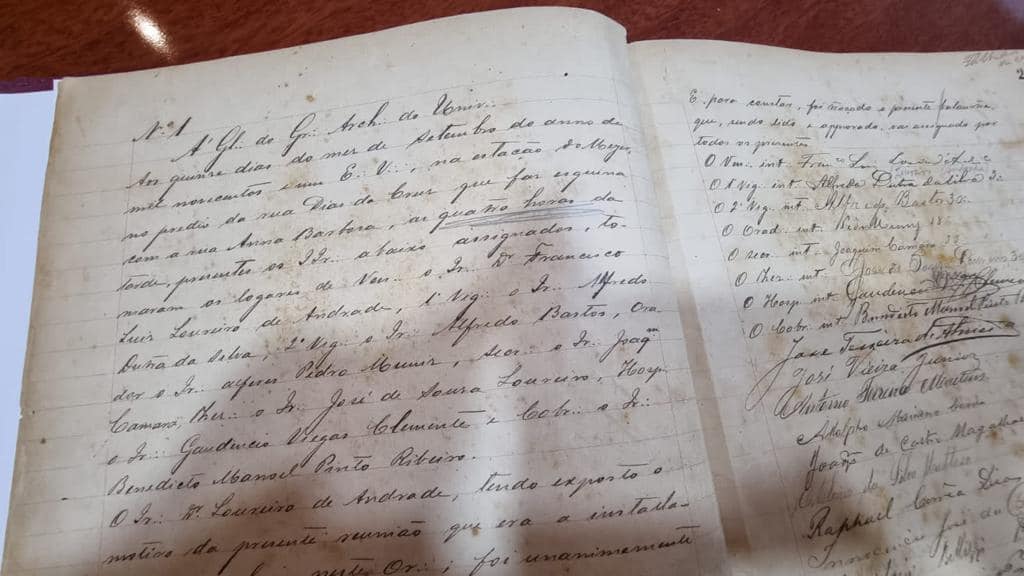 Nº 1
A' Gl∴ do Gr∴ Arch∴ do Univ∴
Aos quinze dias do mez de Setembro do anno de
mil novecentos e um E∴ V∴, na estacão do Meyer
no predio da rua Dias da Cruz que faz esquina
com a rua Anna Barbosa, ás quatro horas da
tarde, presentes os IIr∴ abaixo assignados, to-
maram os logares de Ven∴ o Ir∴ Dr. Francisco
Luiz Loureiro de Andrade, 1º Vig∴ o Ir∴ Alfredo
Dutra da Silva, 2º Vig∴ o Ir∴ Alfredo Bastos, Ora-
dor o Ir∴ alferes Pedro Muniz, Secr∴ o Ir∴ Joaqm
Camara, Thes∴ o Ir∴ José de Souza Loureiro, Hosp∴
o Ir∴ Gaudencio Viegas Clemente e Cobr∴ o Ir∴
Benedicto Manoel Pinto Ribeiro.
O Ir∴ Dr. Loureiro de Andrade, tendo exposto o
motivo da presente reunião que era a installa-
neste Or∴; foi unanimemente
2
E para constar, foi traçado o presente
que, sendo lido e approvado, vai assignado por
todos os presentes
O Ven∴ int.
O 1º Vig∴ int. Alfredo Dutra da Silva
O 2º Vig∴ int. Alfredo Bastos
O Orad∴ int. Pedro Muniz 18∴
O secr∴ int. Joaquim Camara 18
O Thes∴ int. José de
O Hosp∴ int. Gaudencio
O Cobr∴ int. Benedicto Manoel Pinto
José Teixeira
José Vieira Junior
Antonio Martins
Adolpho
de Castro Magalhães
Raphael Corrêa Dias